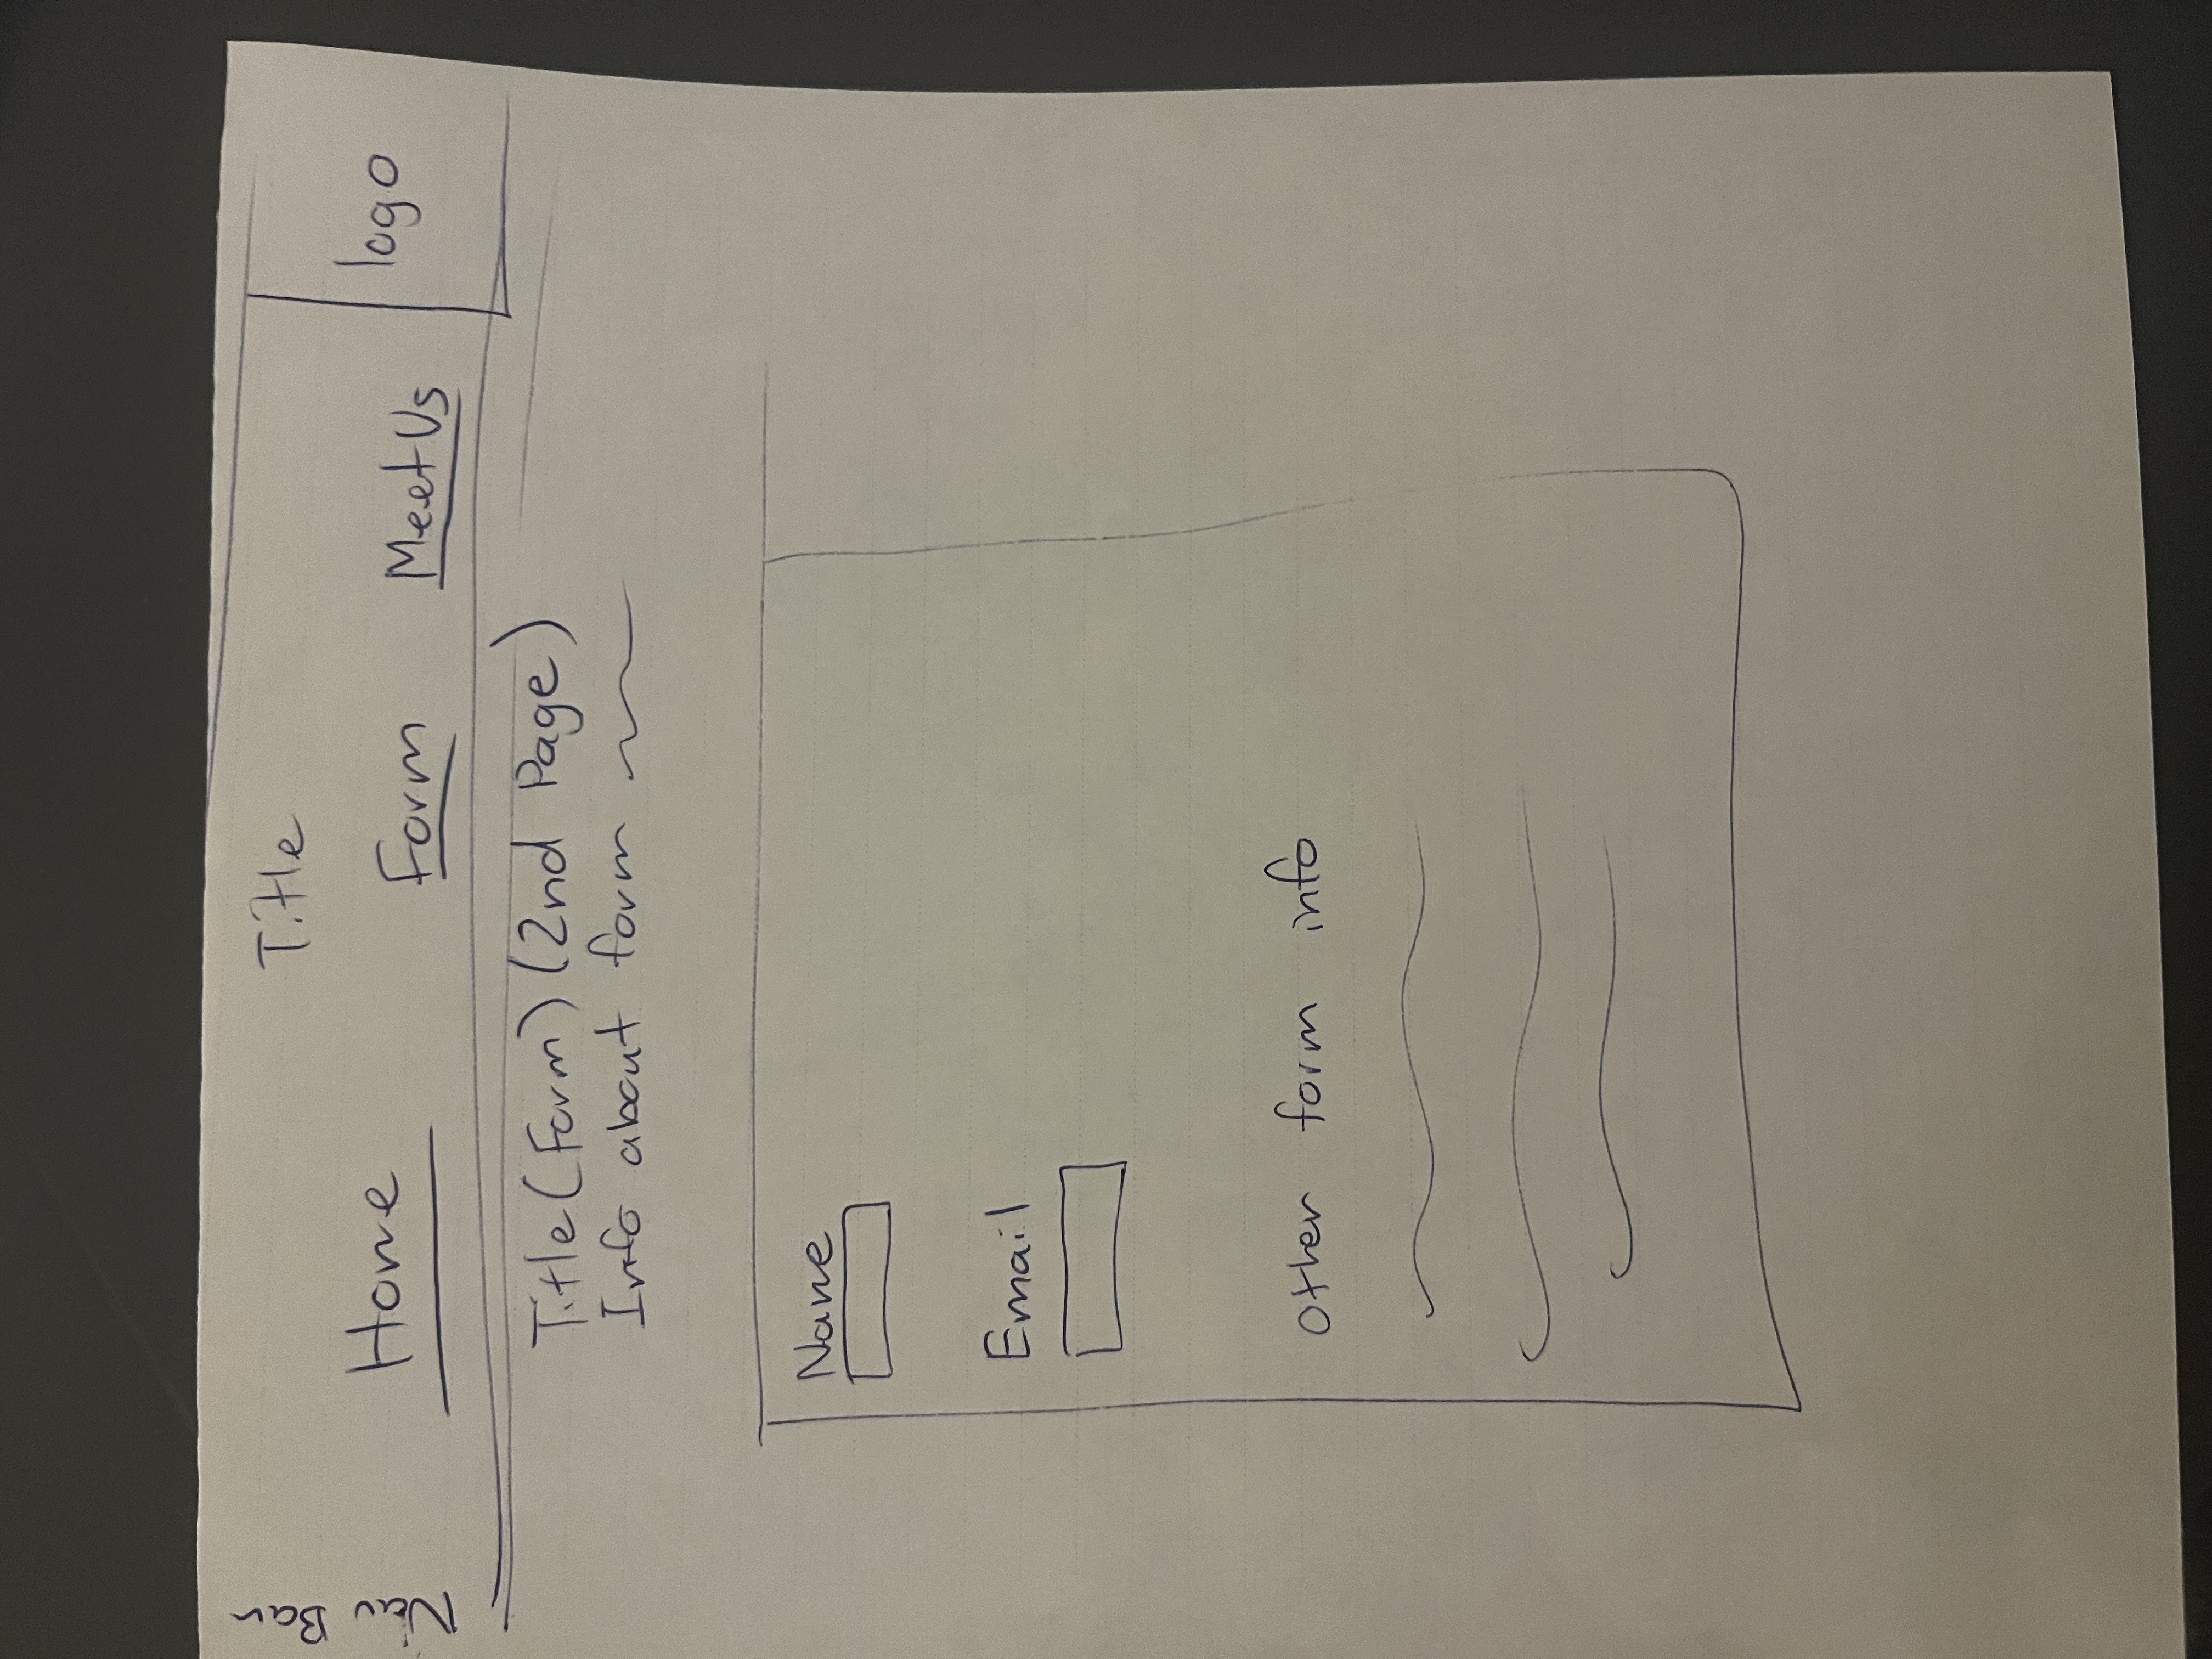 Nav Bar
Title
Home Form Meet Us
logo
Title (Form) (2nd Page)
Info about form
Name
Email
other form info